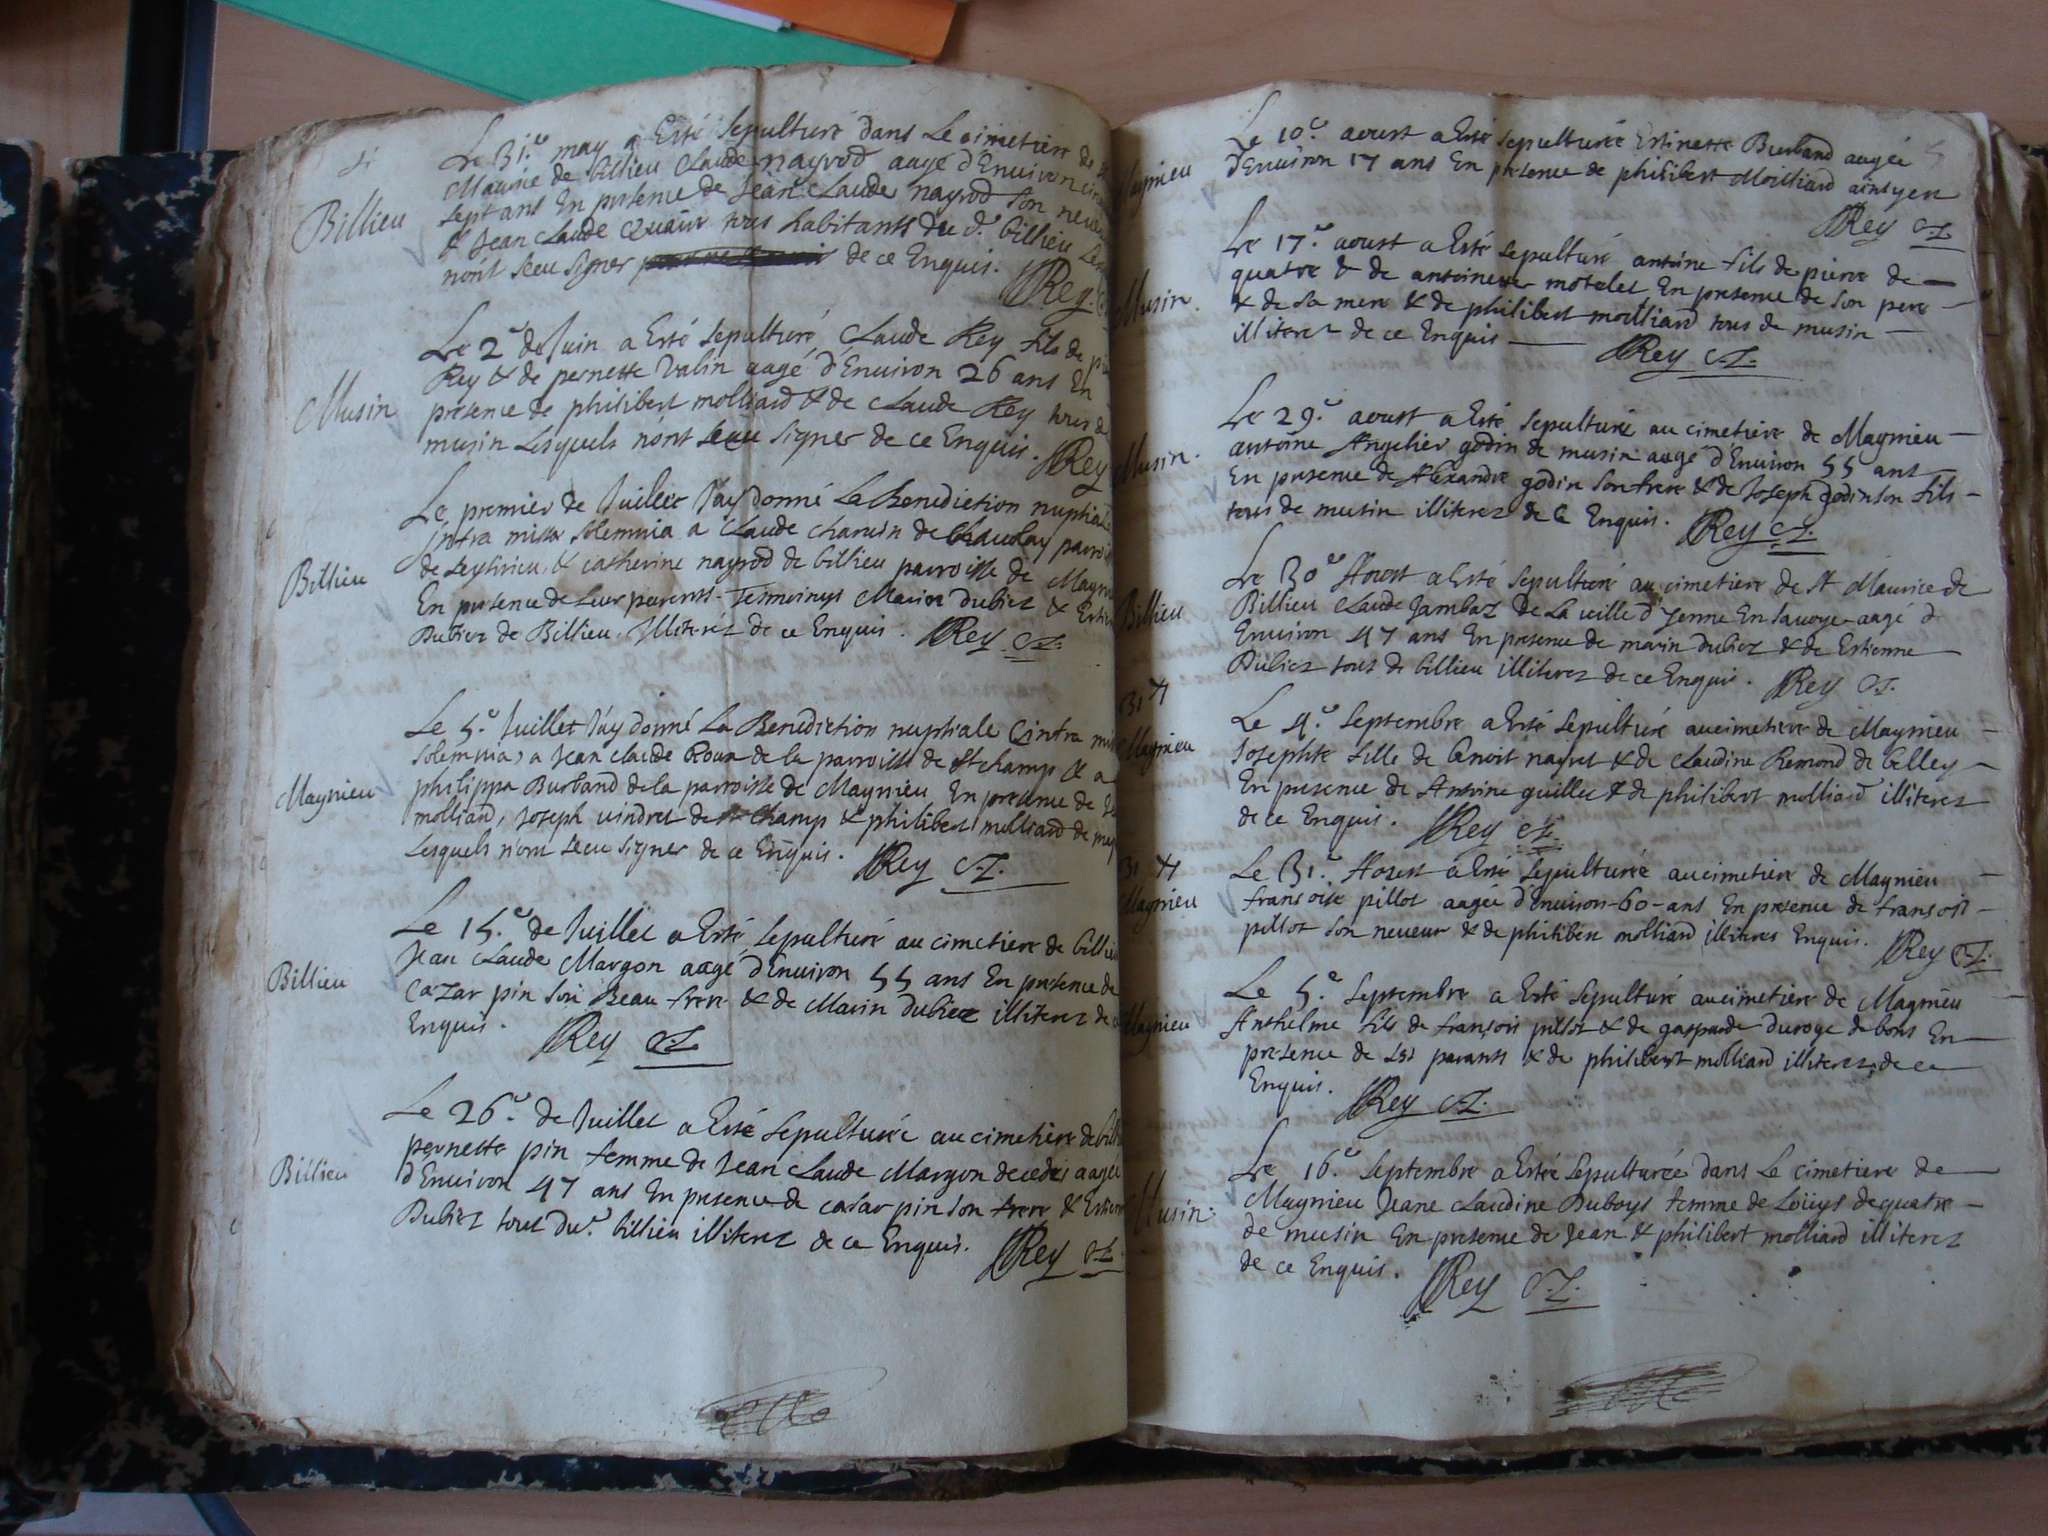 4
Billieu
Le 31.e may a Esté sepulturé dans Le cimetiere de
Maurice de billieu Claude nayrod aagé d'Environ
sept ans En presence de Jean Claude nayrod son neveu
& Jean Claude tous habitants du d.t billieu
n'ont sceu signer de ce Enquis.
Rey
Musin
Le 2e de Juin a Esté sepulturé Claude Rey fils de
Rey & de pernette Valin aagé d'Environ 26 ans En
presence de philibert molliard & de Claude Rey tous de
musin Lesquels n'ont sceu signer de ce Enquis.
Rey
Billieu
Le premier de Juillet J'ay donné La Benediction nuptiale
intra missa solemnia a Claude charvin de
de Leytirieu, & catherine nayrod de billieu parroisse de
En presence de Leur parents. Tesmoings Marin Dubiez &
Dubiez de Billieu. Illiterez de ce Enquis. Rey
Magnieu
Le 5.e Juillet J'ay donné La Benediction nuptiale (intra
solemnia) a Jean claude Roux de la parroisse de St champ & a
philippa Burband de la parroisse de Magnieu En presence de
molliard, Joseph vindret de St champ & philibert molliard de
Lesquels n'ont sceu signer de ce Enquis. Rey
Billieu
Le 15.e de Juillet a Esté sepulturé au cimetiere de
Jean Claude Margon aagé d'Environ 55 ans En presence de
Cazar pin son Beau frere & de Marin dubiez illiterez de
Enquis. Rey
Billieu
Le 26.e de Juillet a Esté sepulturée au cimetiere de
pernette pin femme de Jean Claude Margon decedés aagée
d'Environ 47 ans En presence de casar pin son frere &
Dubiez tout du d. billieu illiterez de ce Enquis. Rey
5
Magnieu
Le 10.e aoust a Esté sepulturée Estinette Burband aagée
d'Environ 17 ans En presence de philibert Molliard
Rey
Musin.
Le 17.e aoust a Esté sepulturé antoine fils de pierre de
quatre & de motelet En presence de son pere
& de sa mere & de philibert molliard tous de musin
illiterez de ce Enquis
Rey
Musin.
Le 29.e aoust a Esté sepulturé au cimetiere de Magnieu
antoine Angelier godin de musin aagé d'Environ 55 ans
En presence de Alexandre godin son frere & de Joseph godin son fils
tous de musin illiterez de ce Enquis. Rey
Billieu
Le 30e Aoust a Esté sepulturé au cimetiere de St Maurice de
Billieu Claude Jambaz de La ville d'Yenne En savoye aagé d
Environ 47 ans En presence de marin dubiez & de Estienne
Dubiez tous de billieu illiterez de ce Enquis. Rey
Magnieu
Le 4.e septembre a Esté sepulturé au cimetiere de Magnieu
Josephte fille de benoit nayret & de Claudine Remond de billey
En presence de Antoine guillet & de philibert molliard illiterez
de ce Enquis. Rey
Magnieu
Le 31. Aoust a Esté sepulturée au cimetiere de Magnieu
françoise pillot aagée d'Environ-60-ans En presence de françois
pillot son neveur & de philibert molliard illiteres Enquis. Rey
Magnieu
Le 5.e septembre a Esté sepulturé au cimetiere de Magnieu
Anthelme fils de françois pillot & de gasparde duroge de bons En
presence de ses parants & de philibert molliard illiterez de ce
Enquis. Rey
Musin.
Le 16.e septembre a Estée sepulturée dans Le cimetiere de
Magnieu Jeane Claudine Duboys femme de Loüys dequatre
de musin En presence de Jean & philibert molliard illiterez
de ce Enquis. Rey